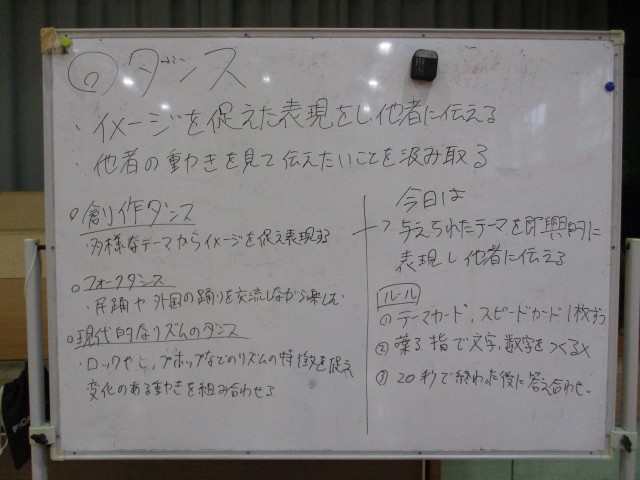 ◎ダンス
・イメージを捉えた表現をし他者に伝える
・他者の動きを見て伝えたいことを汲み取る
○創作ダンス
・多様なテーマからイメージを捉え表現する
○フォークダンス
・民踊や外国の踊りを交流しながら楽しむ
○現代的なリズムのダンス
・ロックやヒップホップなどのリズムの特徴を捉え
変化のある動きを組み合わせる
今日は
→与えられたテーマを即興的に
表現し他者に伝える
ルール
①テーマカード、スピードカード1枚ずつ
②喋る 指で文字、数字をつくる×
③20秒で終わった後に答え合わせ。